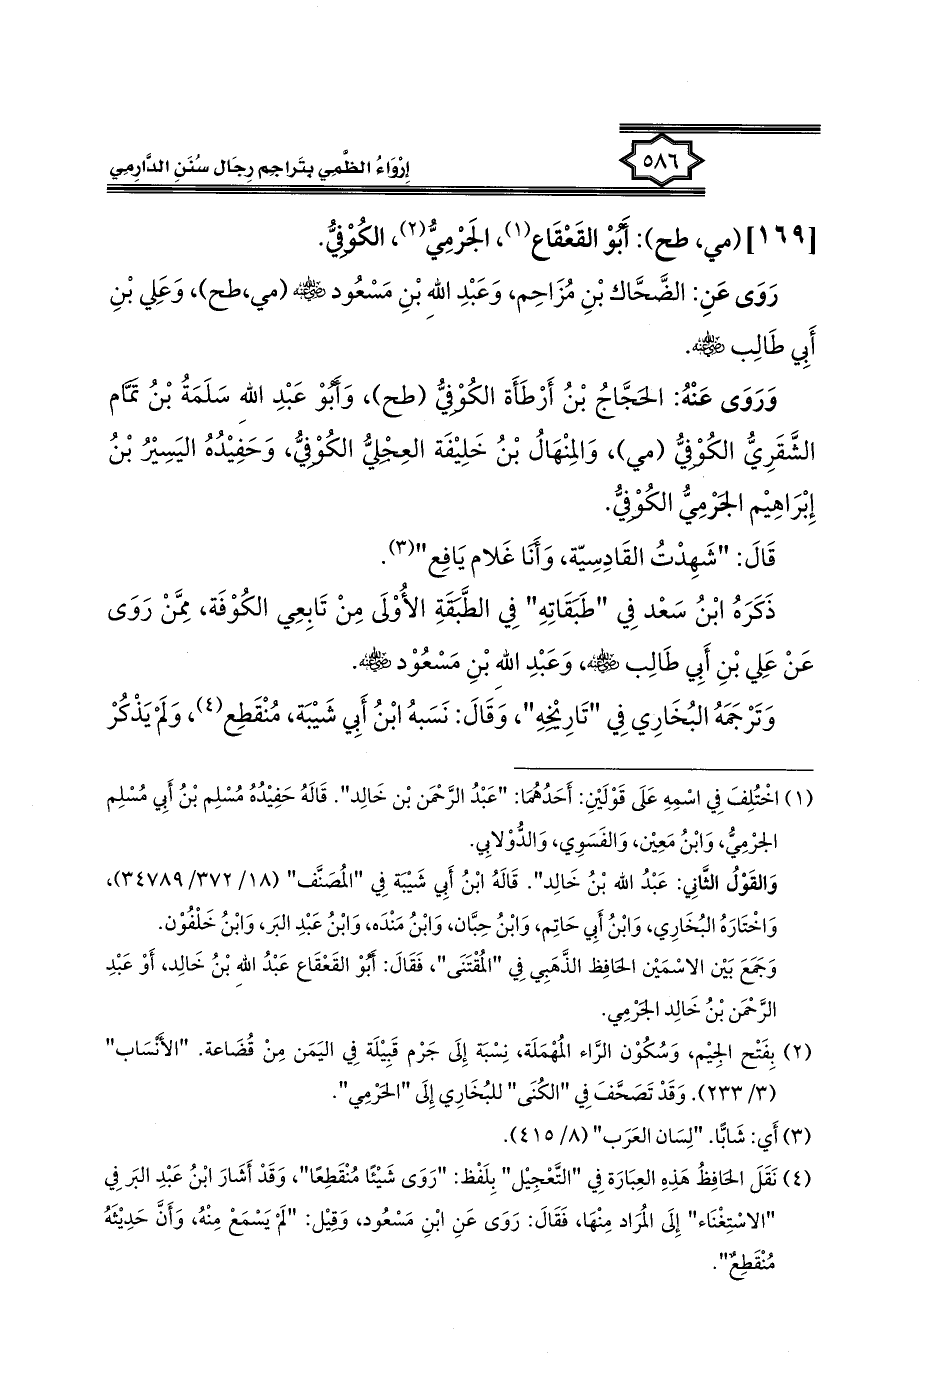 ٥٨٦
إِرْوَاءُ الظَّمِي بتَراجم رِجَال سُنَنِ الدَّارِمِي
[١٦٩] (مي، طح): أَبُوْ القَعْقَاع(١)، الجَرْمِيُّ(٢)، الكُوْفِيُّ.
رَوَى عَنِ: الضَّحَّاك بْنِ مُزَاحِم، وَعَبْدِ اللهِ بْنِ مَسْعُود ﷺ (مي،طح)، وَعَلِي بْنِ
أَبِي طَالِب ﷺ.
وَرَوَى عَنْهُ: الحَجَّاجُ بْنُ أَرْطَأَة الكُوْفِيُّ (طح)، وَأَبُوْ عَبْدِ اللهِ سَلَمَةُ بْنُ تَمَّام
الشَّقَرِيُّ الكُوْفِيُّ (مي)، وَالمِنْهَالُ بْنُ خَلِيْفَة العِجْلِيُّ الكُوْفِيُّ، وَحَفِيْدُهُ اليَسِيْرُ بْنُ
إِبْرَاهِيْم الجَرْمِيُّ الكُوْفِيُّ.
قَالَ: "شَهِدْتُ القَادِسِيّة، وَأَنَا غَلام يَافِع"(٣).
ذَكَرَهُ ابْنُ سَعْد فِي "طَبَقَاتِهِ" فِي الطَّبَقَةِ الأُوْلَى مِنْ تَابِعِي الكُوْفَة، مِمَّنْ رَوَى
عَنْ عَلِي بْنِ أَبِي طَالِب ﷺ، وَعَبْدِ اللهِ بْنِ مَسْعُوْد ﷺ.
وَتَرْجَمَهُ البُخَارِي فِي "تَارِيْخِهِ"، وَقَالَ: نَسَبهُ ابْنُ أَبِي شَيْبَة، مُنْقَطِع(٤)، وَلَمْ يَذْكُرْ
(١) اخْتُلِفَ فِي اسْمِهِ عَلَى قَوْلَيْنِ: أَحَدُهُمَا: "عَبْدُ الرَّحْمَن بْن خَالِد". قَالَهُ حَفِيْدُهُ مُسْلِم بْنُ أَبِي مُسْلِم
الجَرْمِيُّ، وَابْنُ مَعِيْن، وَالفَسَوِي، وَالدُّوْلابِي.
وَالقَوْلُ الثَّانِي: عَبْدُ الله بْنُ خَالِد". قَالَهُ ابْنُ أَبِي شَيْبَة فِي "المُصَنَّف" (١٨/ ٣٧٢/ ٣٤٧٨٩)،
وَاخْتَارَهُ البُخَارِي، وَابْنُ أَبِي حَاتِم، وَابْنُ حِبَّان، وَابْنُ مَنْدَه، وَابْنُ عَبْدِ البَر، وَابْنُ خَلْفُوْن.
وَجَمَعَ بَيْن الاسْمَيْن الحَافِظ الذَّهَبِي فِي "المُقْتَنَى"، فَقَالَ: أَبُوْ القَعْقَاع عَبْدُ اللهِ بْنُ خَالِد، أَوْ عَبْدِ
الرَّحْمَن بْنُ خَالِد الجَرْمِي.
(٢) بِفَتْح الجِيْم، وَسُكُوْن الرَّاء المُهْمَلَة، نِسْبَة إِلَى جَرْم قَبِيْلَة فِي اليَمَن مِنْ قُضَاعَة. "الأَنْسَاب"
(٣/ ٢٣٣). وَقَدْ تَصَحَّفَ فِي "الكُنَى" للبُخَارِي إِلَى "الحَرْمِي".
(٣) أَي: شَابًّا. "لِسَان العَرَب" (٨/ ٤١٥).
(٤) نَقَلَ الحَافِظُ هَذِهِ العِبَارَة فِي "التَّعْجِيْل" بِلَفْظ: "رَوَى شَيْئًا مُنْقَطِعًا"، وَقَدْ أَشَارَ ابْنُ عَبْدِ البَر فِي
"الاسْتِغْنَاء" إِلَى المُرَاد مِنْهَا، فَقَالَ: رَوَى عَنِ ابْنِ مَسْعُود، وَقِيْل: "لَمْ يَسْمَعْ مِنْهُ، وَأَنَّ حَدِيْثَهُ
مُنْقَطِعٌ".